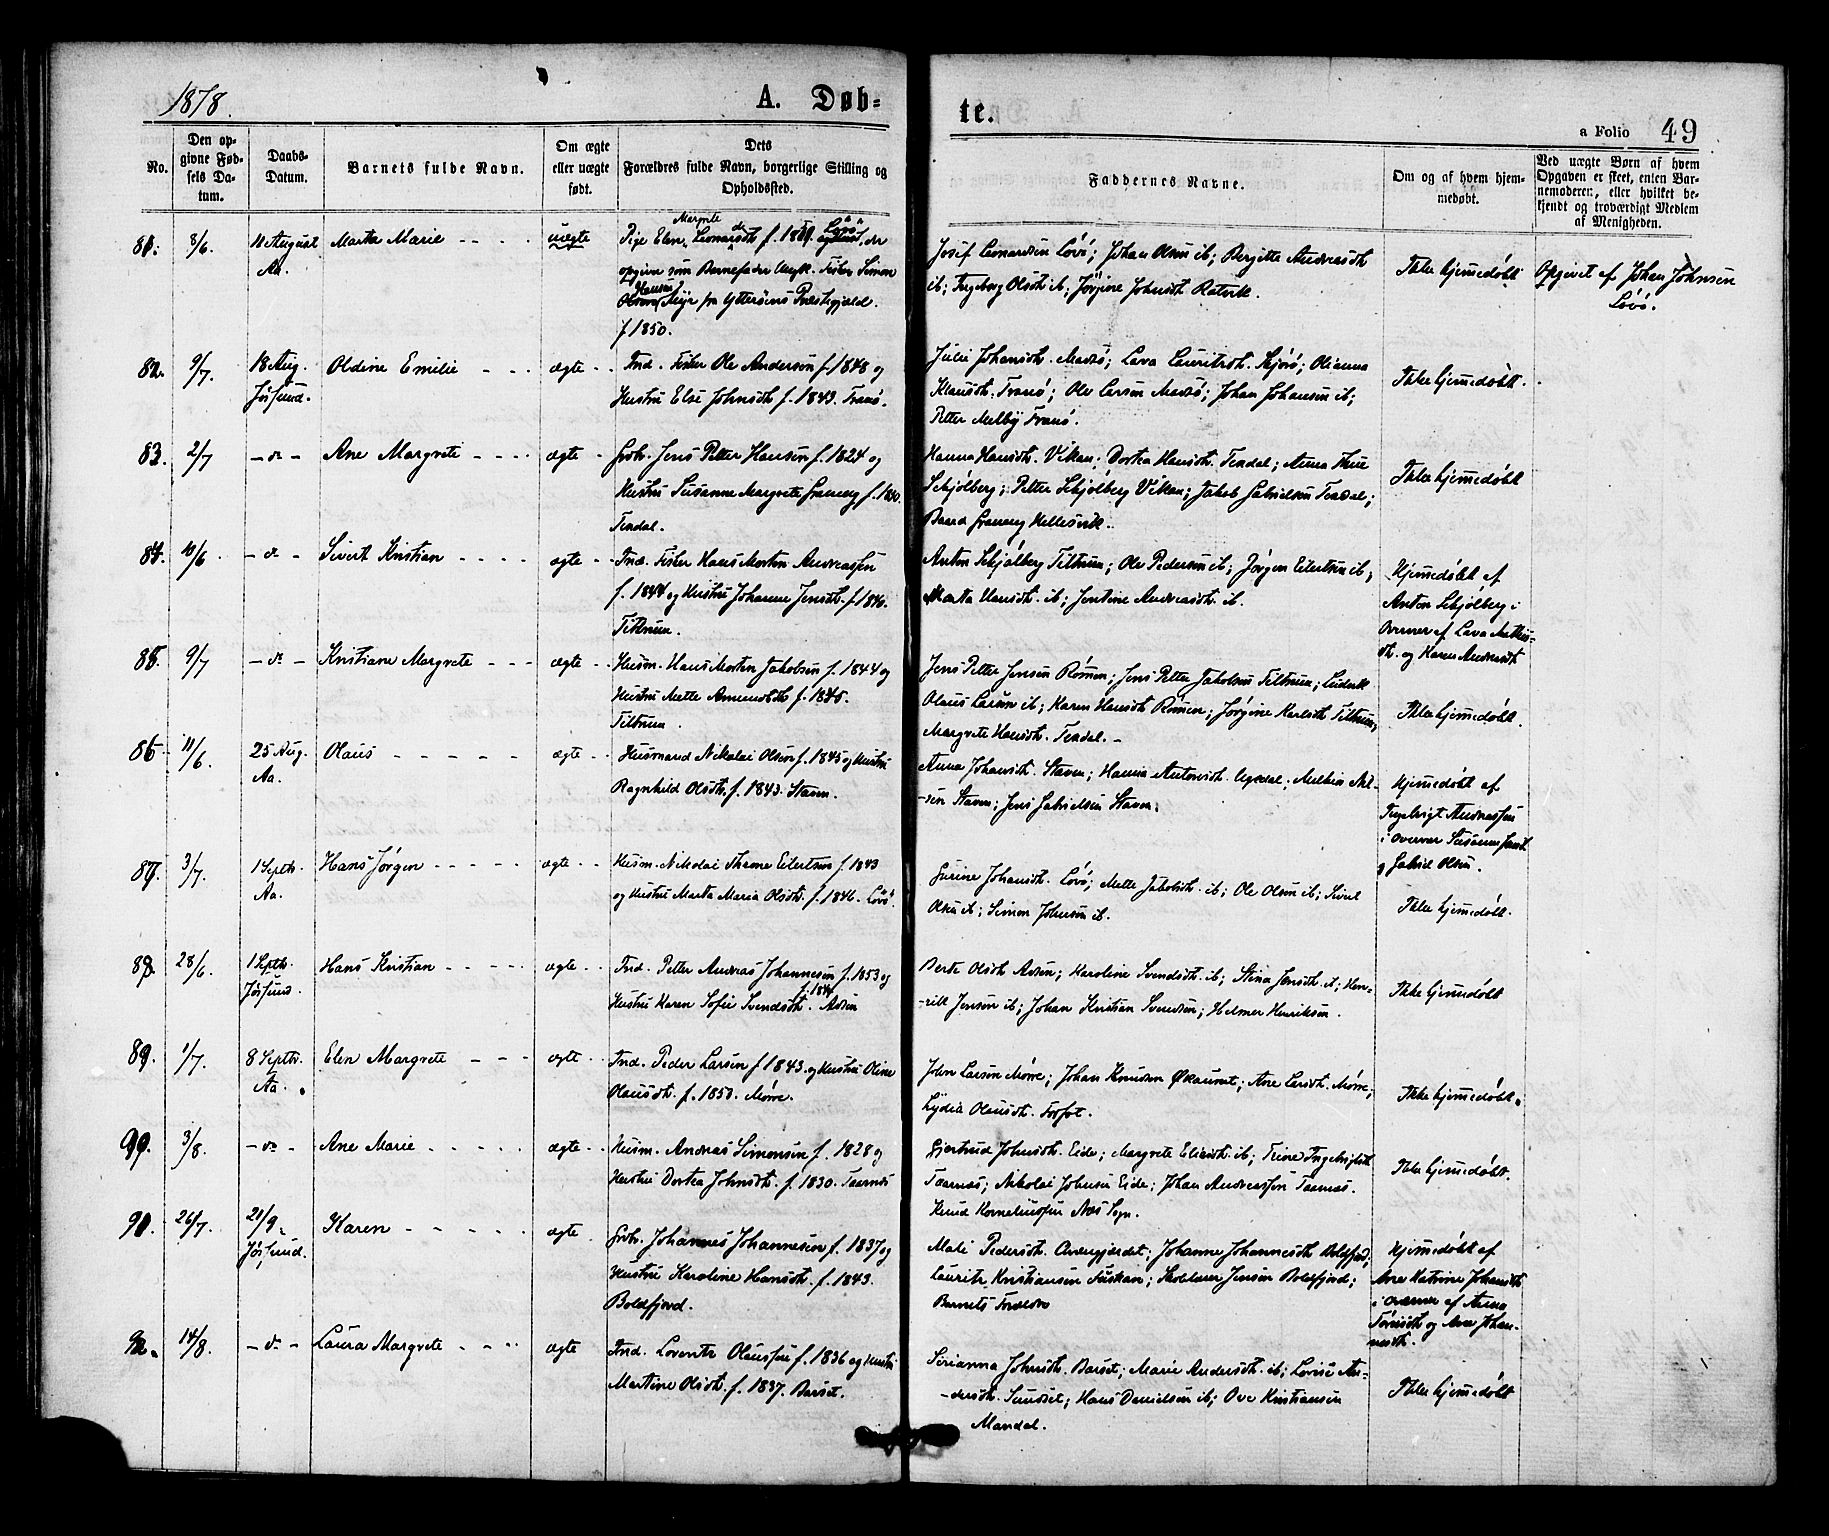 1878.
A. Døb=
te.
a Folio 49
No.
Den op-
givne Fød-
sels Da-
tum.
Daabs-
Datum.
Barnets fulde Navn.
Om ægte
eller uægte
født.
Dets
Forældres fulde Navn, borgerlige Stilling og
Opholdssted.
Faddernes Navne.
Om og af hvem hjem-
medøbt.
Ved uægte Børn af hvem
Opgaven er skeet, enten Bar-
nemoderen, eller hvilket be-
kjendt og troværdigt Medlem
af Menigheden.
81. 8/6. 11 August
Aa.
Marta Marie
uægte
Pige Elen Leonardsdt. f. 18 Løvø, der
opgiver som Barnefader Ungk. Fisker Simon
Hansen
Meyer fra Ytterøens Præstegjæld.
f 1850.
Josef Leonardsen Løvø; Johan Olsen ib; Bergitte Andreasdt
ib; Ingeborg Olsdt ib; Jørgine Johnsdt Ratvik.
Ikke hjemmedøbt
Opgivet af Johan Johnsen
Løvø.
82. 9/7. 18 Aug.
Jøssund.
Oldine Emilie
ægte
Ind. Fisker Ole Anderson f 1848 og
Hustru Else Johnsdt f. 1843. Franø.
Julie Johansdt. Madsø; Lava Lauritsdt. Skjørø; Olianna
Klausdt. Franø; Ole Larsen Madsø; Johan Johansen ib;
Petter Melby Franø.
Ikke hjemmedøbt.
83. 2/7 - do -
Ane Margrete
ægte
Grbr. Jens Petter Hansen f. 1824 og
Hustru Susanne Margrete Graneng f. 18
Teksdal.
Hanna Hansdt. Vikan; Dortea Hansdt. Teksdal; Anna Thue
Schjølberg; Petter Schjølberg Vikan; Jakob Gabrielsen Teksdal;
Baard Graneng Hellesvik.
Ikke hjemmedøbt
84. 10/6 - do -
Sivert Kristian
ægte
Ind. Fisker Hans Morten Andreassen
f. 1844 og Hustru Johanna Jensdt. f 1846.
Tiltrum.
Anton Schjølberg Tiltrum; Ole Pedersen ib; Jørgen Eilertsen ib;
Marta Hansdt. ib; Jentine Andreasdt. ib.
Hjemmedøbt af
Anton Schjølberg i
Overvær af Lava Mathis-
dt. og Karen Andreasdt
85. 9/7 - do -
Kristiane Margrete
ægte
Husm. Hans Morten Jakobsen f. 1844 og
Hustru Mette Amundsdt f. 1845.
Tiltrum.
Jens Petter Jensen Rømen; Jens Petter Jakobsen Tiltrum;
Olaus Larsen ib; Karen Hansdt Rømen; Jørgine Karlsdt Tiltrum;
Margrete Hansdt. Teksdal. -
Ikke hjemmedøbt.
86 11/6 25 Aug.
Aa.
Olaus
ægte
Husmand Nikolai Olsen f. 1845 og Hustru
Ragnhild Olsdt. f. 1843. Staven.
Anna Johansdt. Staven; Hanna Antonsdt. Ugedal; Melkior Niel-
-sen Staven; Jens Gabrielsen Staven.
Hjemmedøbt af
Ingebrigt Andreassen
i overvær Susanna
og Gabriel Olsen.
87. 3/7. 1 Septbr.
Aa.
Hans Jørgen
ægte
Husm. Nikolai Thrane Eilertsen f. 1843
og Hustru Marta Maria Olsdt. f. 1846. Løvø.
Gurine Johansdt. Løvø; Mette Jakobsdt. ib; Ole Olsen ib; Sivert
Olsen ib; Simon Johnsen ib.
Ikke hjemmedøbt.
88. 28/6. 1 Septbr.
Jøssund.
Hans Kristian
ægte
Ind. Petter Andreas Johannesen f. 1853 og
Hustru Karen Sofie Svendsdt. Asen
Berte Olsdt Asen; Karoline Svendsdt. ib; Stina Jensdt. ib; Hen-
-rik Jensen ib; Johan Kristian Svendsen; Helmer Henriksen.
Ikke hjemmedøbt
89. 1/7. 8 Septbr.
Aa.
Elen Margrete
ægte
Ind. Peder Larsen f 1843 og Hustru Oline
Olausdt. f. 1850. Mørre.
John Larsen Mørre; Johan Knudsen Økaunet; Ane Larsdt. Mørre;
Lydia Olausdt. Forfot.
Ikke hjemmedøbt.
90. 3/8. - do -
Ane Marie
ægte
Husm. Andreas Simonsen f. 1828 og
Hustru Dortea Johnsdt. f. 1830. Taarnæs
Gjertrud Johnsdt. Eide; Margrete Eliasdt. ib; Trine Ingebrigtsdt
Taarnæs; Nikolai Johnsen Eide; Johan Andreassen Taarnæs.
Knud Korneliussen Næs Sogn.
Ikke hjemmedøbt.
91. 26/7. 21/9.
Jøssund.
Karen
ægte
Grbr. Johannes Johannesen f. 1837 og
Hustru Karoline Hansdt. f. 1843.
Boldfjord.
Mali Pedersdt. Overgjerdet; Johanna Johannesdt Boldfjord;
Laurits Kristiansen Fuskan; Jensen Boldfjord;
Barnets Forældre
Hjemmedøbt af
Ane Katrine Johansdt
i overvær af Anna
Tørrisdt og Ane Johan-
nesdt.
92. 14/8. - do -
Laura Margrete
ægte
Ind. Lorents Olaussen f. 1836 og Hustru
Martine Olsdt. f. 1837. Barset.
Sirianna Johnsdt. Barset; Marie Andersdt. ib; Lovise An-
-dersdt. Sundset; Hans Danielsen ib; Ove Kristiansen
Mandal.
Ikke hjemmedøbt